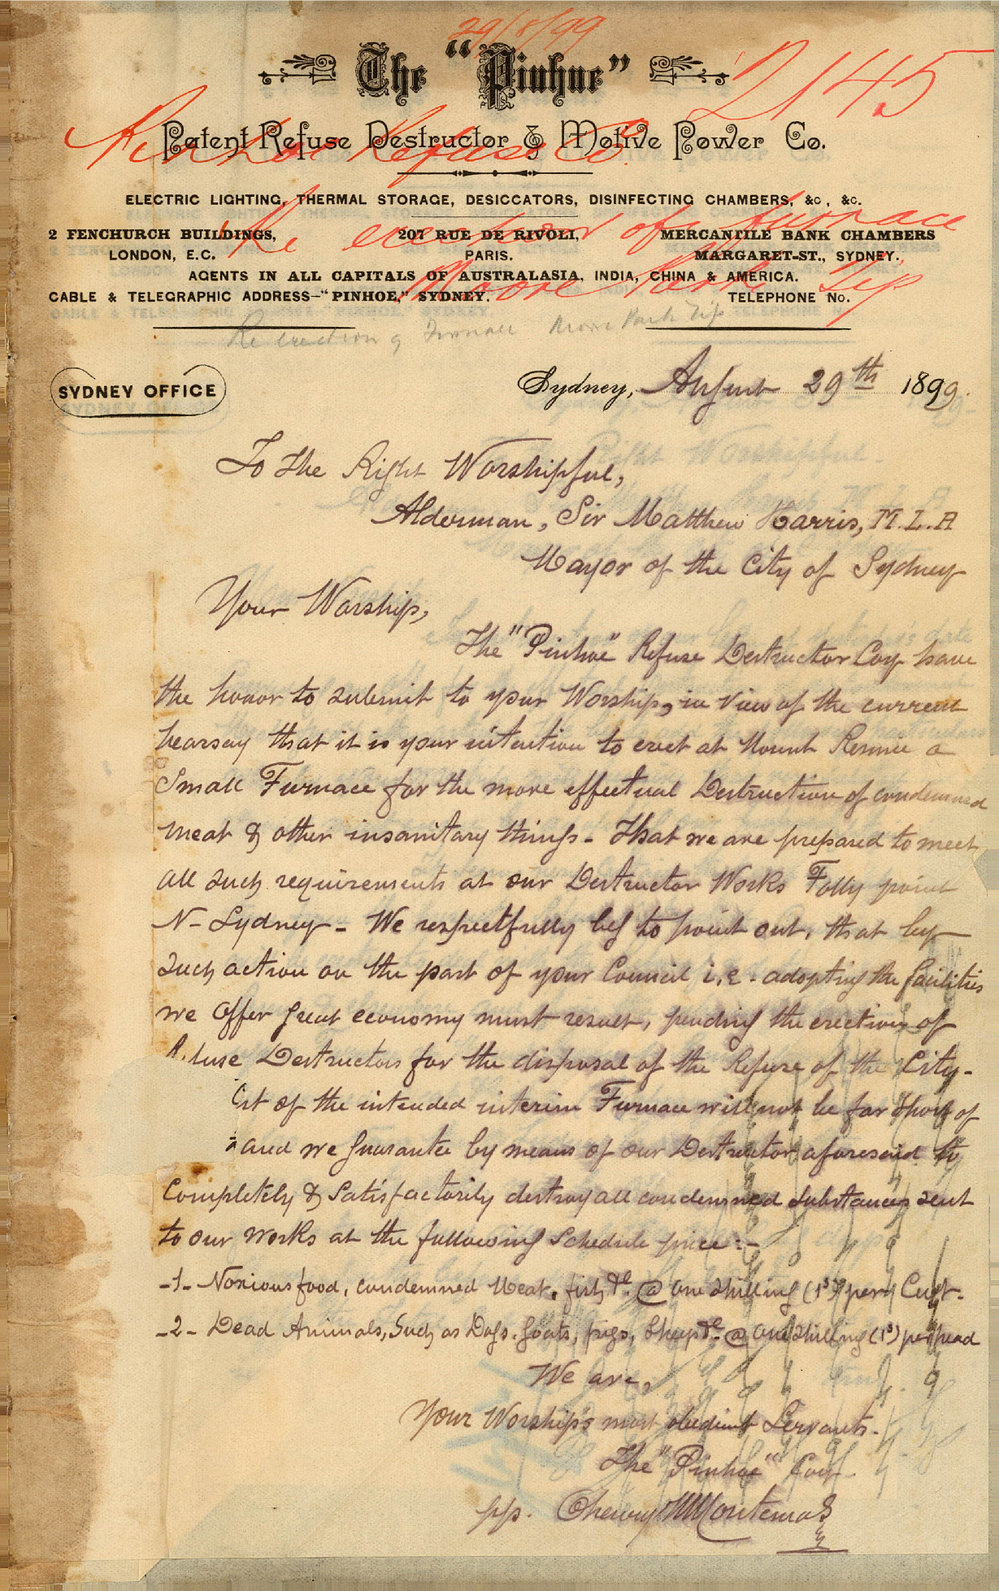 29/8/99
2145
The "Pinhoe"
Patent Refuse Destructor & Motive Power Co.
Pinhoe Refuse Co.
ELECTRIC LIGHTING, THERMAL STORAGE, DESICCATORS, DISINFECTING CHAMBERS, &c, &c.
Re erection of furnace
2 FENCHURCH BUILDINGS, 207 RUE DE RIVOLI, MERCANTILE BANK CHAMBERS
LONDON, E.C. PARIS. MARGARET-ST., SYDNEY.
AGENTS IN ALL CAPITALS OF AUSTRALASIA, INDIA, CHINA & AMERICA.
Moore Park Tip
CABLE & TELEGRAPHIC ADDRESS–"PINHOE," SYDNEY. TELEPHONE No.
Re erection of Furnace Moore Park Tip
SYDNEY OFFICE
Sydney, August 29th 1899.
To the Right Worshipful,
Alderman, Sir Matthew Harris, M.L.A
Mayor of the City of Sydney
Your Worship,
The "Pinhoe" Refuse Destructor Coy have
the honor to submit to your Worship, in view of the current
hearsay that it is your intention to erect at Mount Rennie a
Small Furnace for the more effectual Destruction of condemned
meat & other insanitary things - that we are prepared to meet
all such requirements at our Destructor Works Folly point
N- Sydney - We respectfully beg to point out, that by
such action on the part of your Council i.e. adopting the facilities
we offer great economy must result, pending the erection of
Destructors for the disposal of the Refuse of the City-
of the intended interim Furnace will not be far short of
and we guarantee by means of our Destructor aforesaid to
Completely & Satisfactorily destroy all condemned substances sent
to our works at the following Schedule price:-
-1- Noxious food, condemned Meat, fish, &c. @ one shilling (1s) per Cwgt.
-2- Dead Animals, Such as Dogs, Goats, pigs, Sheep &c @ one shilling (1s) per head
We are,
Your Worship's most obedient Servants.
The "Pinhoe" Coy
pp.